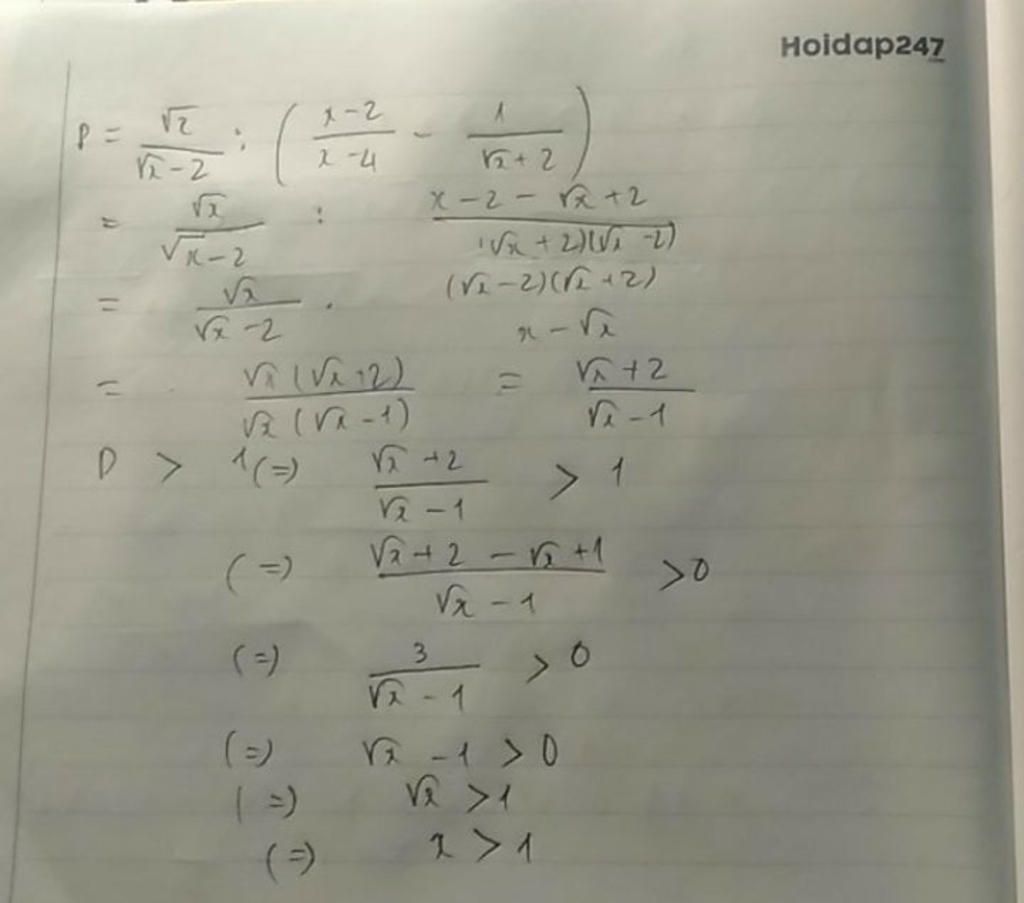 Hoidap247
P = √x / (√x - 2) : ( (x - 2) / (x - 4) - 1 / (√x + 2) )
= √x / (√x - 2) : (x - 2 - √x + 2) / ((√x + 2)(√x - 2))
= √x / (√x - 2) . (√x - 2)(√x + 2) / (x - √x)
= √x (√x + 2) / (√x (√x - 1)) = (√x + 2) / (√x - 1)
P > 1 (=) (√x + 2) / (√x - 1) > 1
(=) (√x + 2 - √x + 1) / (√x - 1) > 0
(=) 3 / (√x - 1) > 0
(=) √x - 1 > 0
(=) √x > 1
(=) x > 1